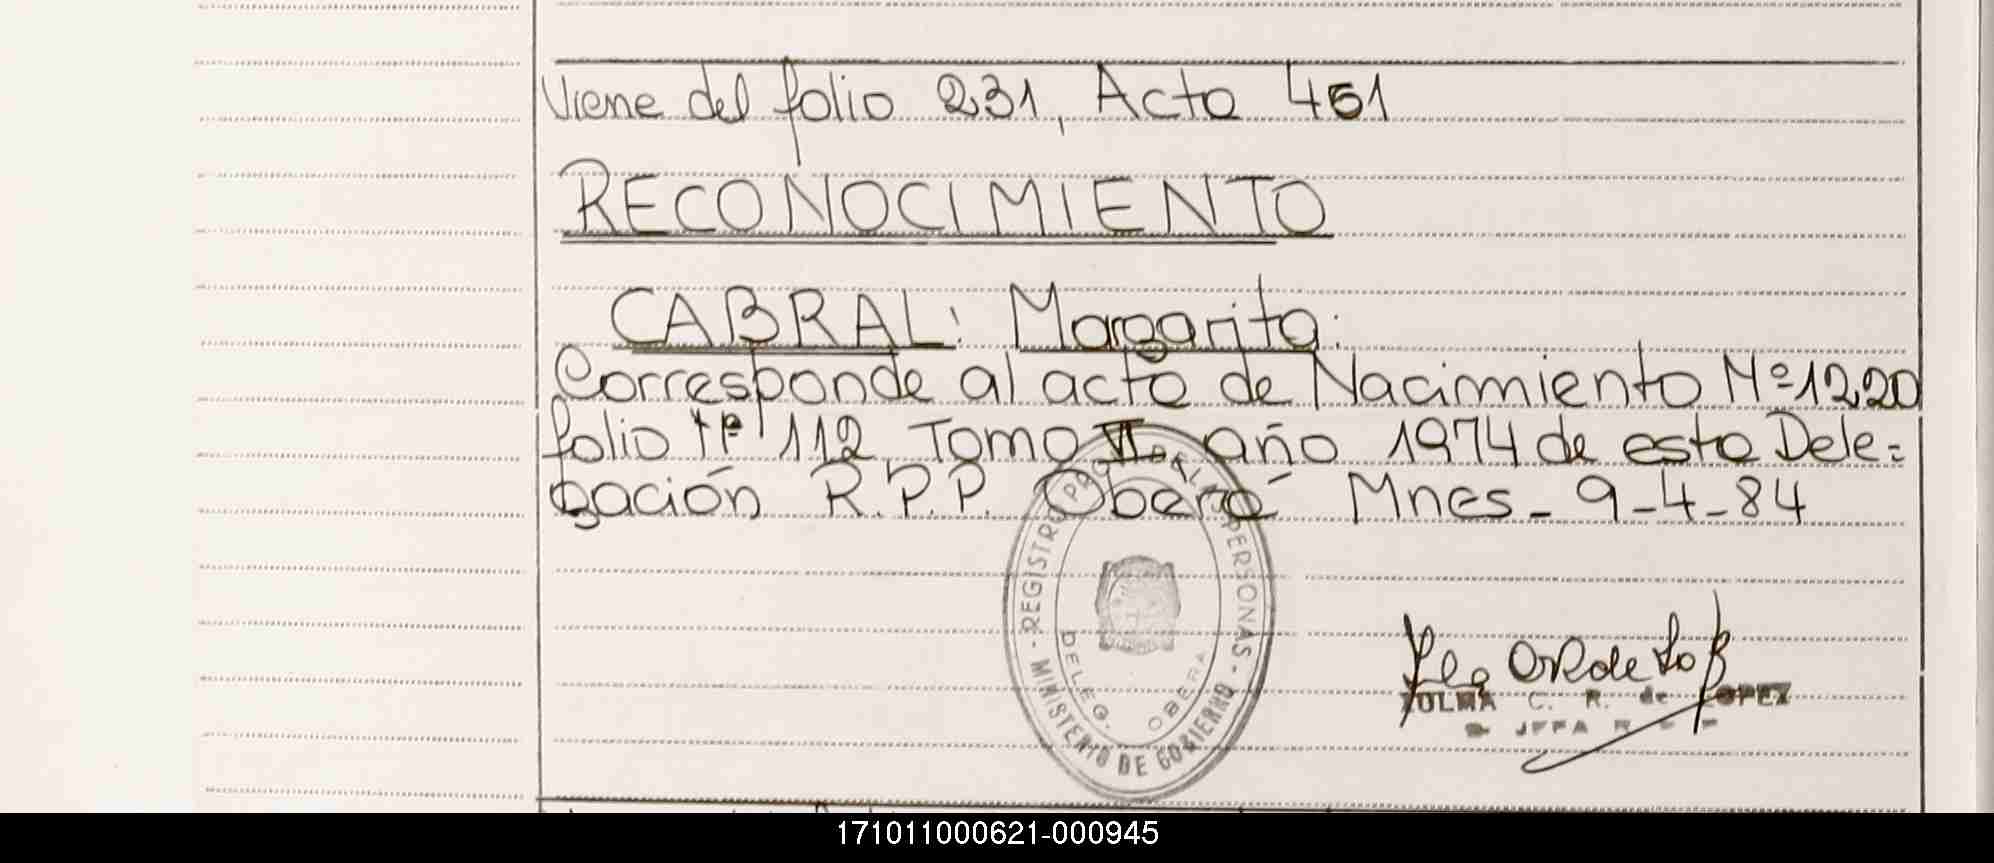 Viene del folio 231, Acta 451
RECONOCIMIENTO
CABRAL: Margarita:
Corresponde al acta de Nacimiento Nº 1220
folio Nº 112 Tomo VI año 1974 de esta Dele=
gación R.P.P. Oberá Mnes - 9-4-84
REGISTRO PERSONAS - MINISTERIO DE GOBIERNO
DELEG. OBERA
C. R. de LOPEZ
JEFA
171011000621-000945